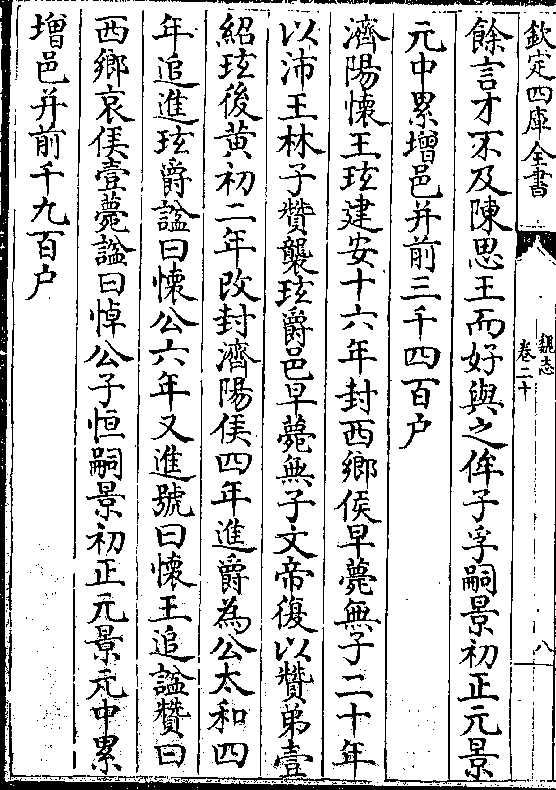 欽定四庫全書
魏志
卷二十
八
餘言才不及陳思王而好與之侔子孚嗣景初正元景
元中累增邑并前三千四百户
濟陽懷王玹建安十六年封西鄉侯早薨無子二十年
以沛王林子贊襲玹爵邑早薨無子文帝復以贊弟壹
紹玹後黃初二年改封濟陽侯四年進爵為公太和四
年追進玹爵諡曰懷公六年又進號曰懷王追諡贊曰
西鄉哀侯壹薨諡曰悼公子恒嗣景初正元景元中累
增邑并前千九百户